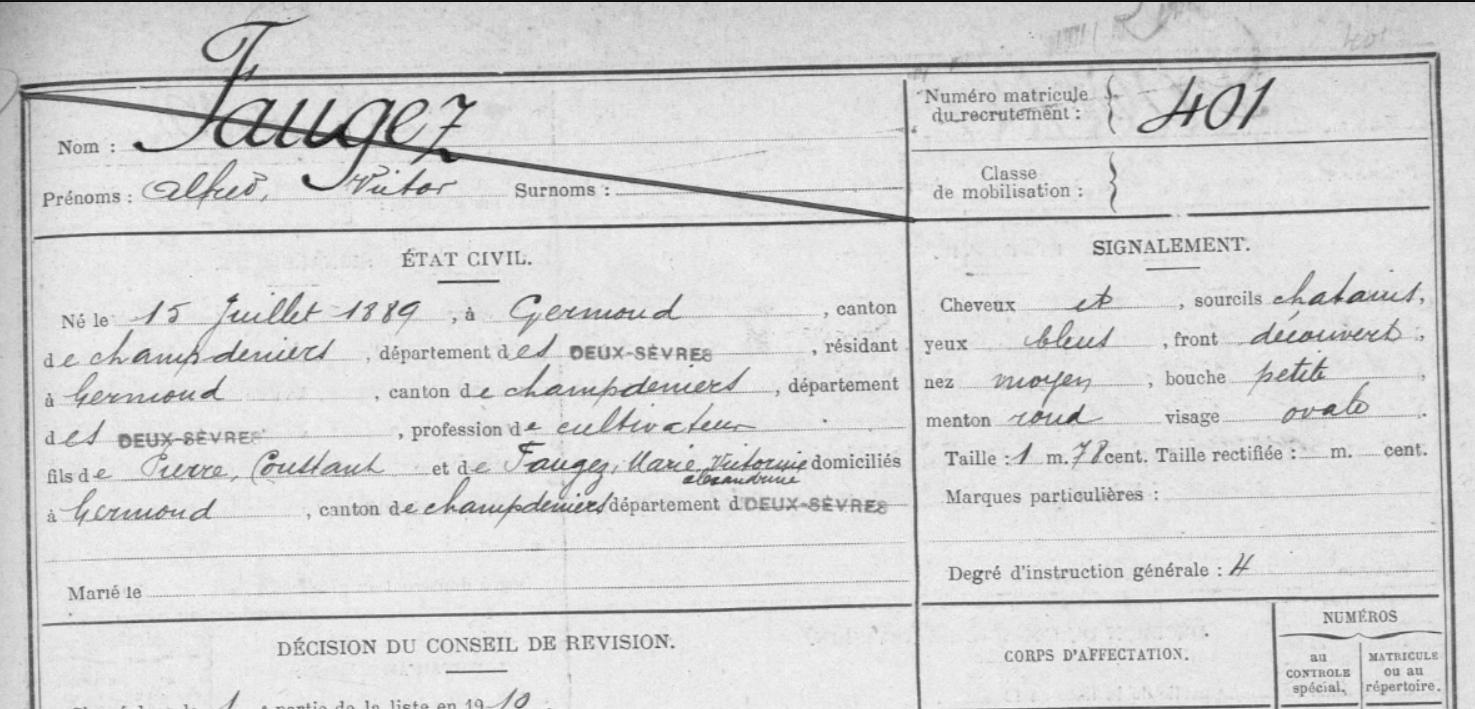 Nom : Faugez
Numéro matricule du recrutement : 401
Prénoms : Alfred, Victor Surnoms :
Classe de mobilisation :
ÉTAT CIVIL.
Né le 15 Juillet 1889, à Germond, canton
de champdeniers, département des DEUX-SÈVRES, résidant
à Germond, canton de champdeniers, département
des DEUX-SÈVRES, profession de cultivateur
fils de Pierre, Constant et de Faugez, Marie, Victorine alexandrine domiciliés
à Germond, canton de champdeniers département d DEUX-SÈVRES
Marié le
SIGNALEMENT.
Cheveux et, sourcils chatains,
yeux bleus, front découvert,
nez moyen, bouche petite,
menton rond visage ovale.
Taille : 1 m. 78 cent. Taille rectifiée : m. cent.
Marques particulières :
Degré d'instruction générale : 4
DÉCISION DU CONSEIL DE REVISION.
CORPS D'AFFECTATION.
NUMÉROS
au CONTROLE spécial.
MATRICULE ou au répertoire.
partie de la liste en 1910.